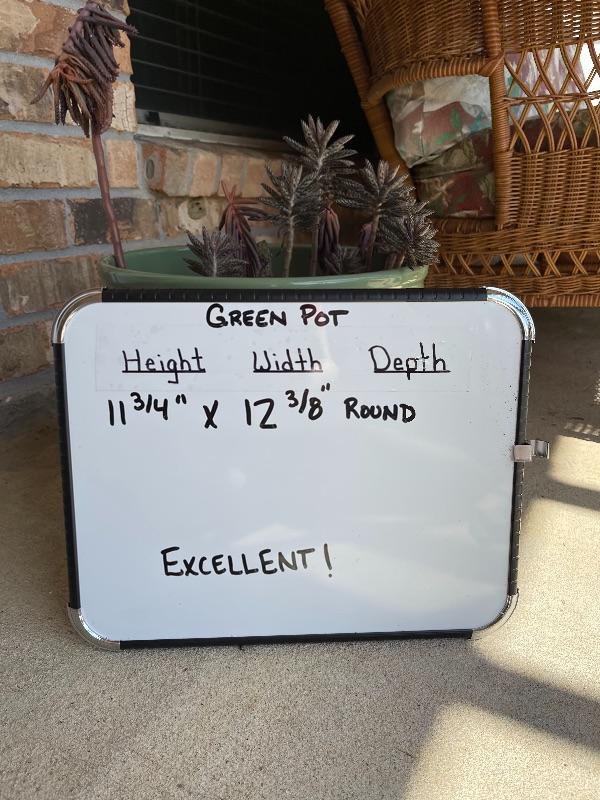 GREEN POT
Height Width Depth
11 3/4" X 12 3/8" ROUND
EXCELLENT!